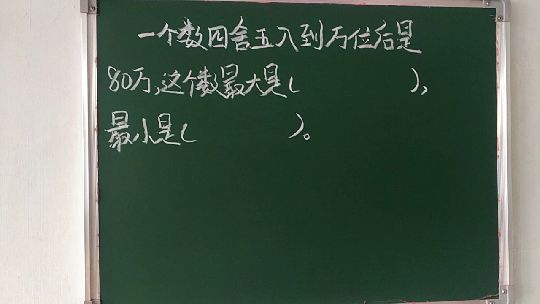 一个数四舍五入到万位后是
80万,这个数最大是(      ),
最小是(      )。